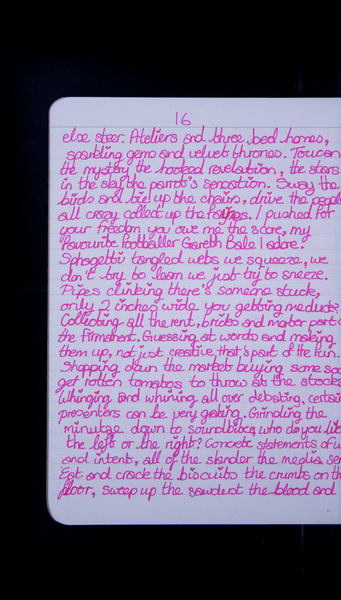 16
else steer. Ateliers and three bed homes,
sparkling gems and velvet thrones. Toucan
the mystery the hooked revelation, the stars
in the sky the parrot's sensation. Sway the
birds and tie up the chairs, drive the people
all crazy collect up the fayres. I pushed for
your freedom you owe me the score, my
favourite footballer Gareth Bale I adore.
Sphagetti tangled webs we squeeze, we
don't try to learn we just try to sneeze.
Pipes clinking there's someone stuck,
only 2 inches wide you getting me duck?
Collecting all the rent, bricks and mortar part of
the firmament. Guessing at words and making
them up, not just creative that's part of the fun.
Shopping down the markets buying some
get rotten tomatos to throw at the stocks
Whinging and whining all over debating, certain
presenters can be very grating. Grinding the
minutae down to soundbites, who do you like
the left or the right? Concrete statements of
and intent, all of the slander the media
Eat and crack the biscuits the crumbs on the
floor, sweep up the sawdust the blood and